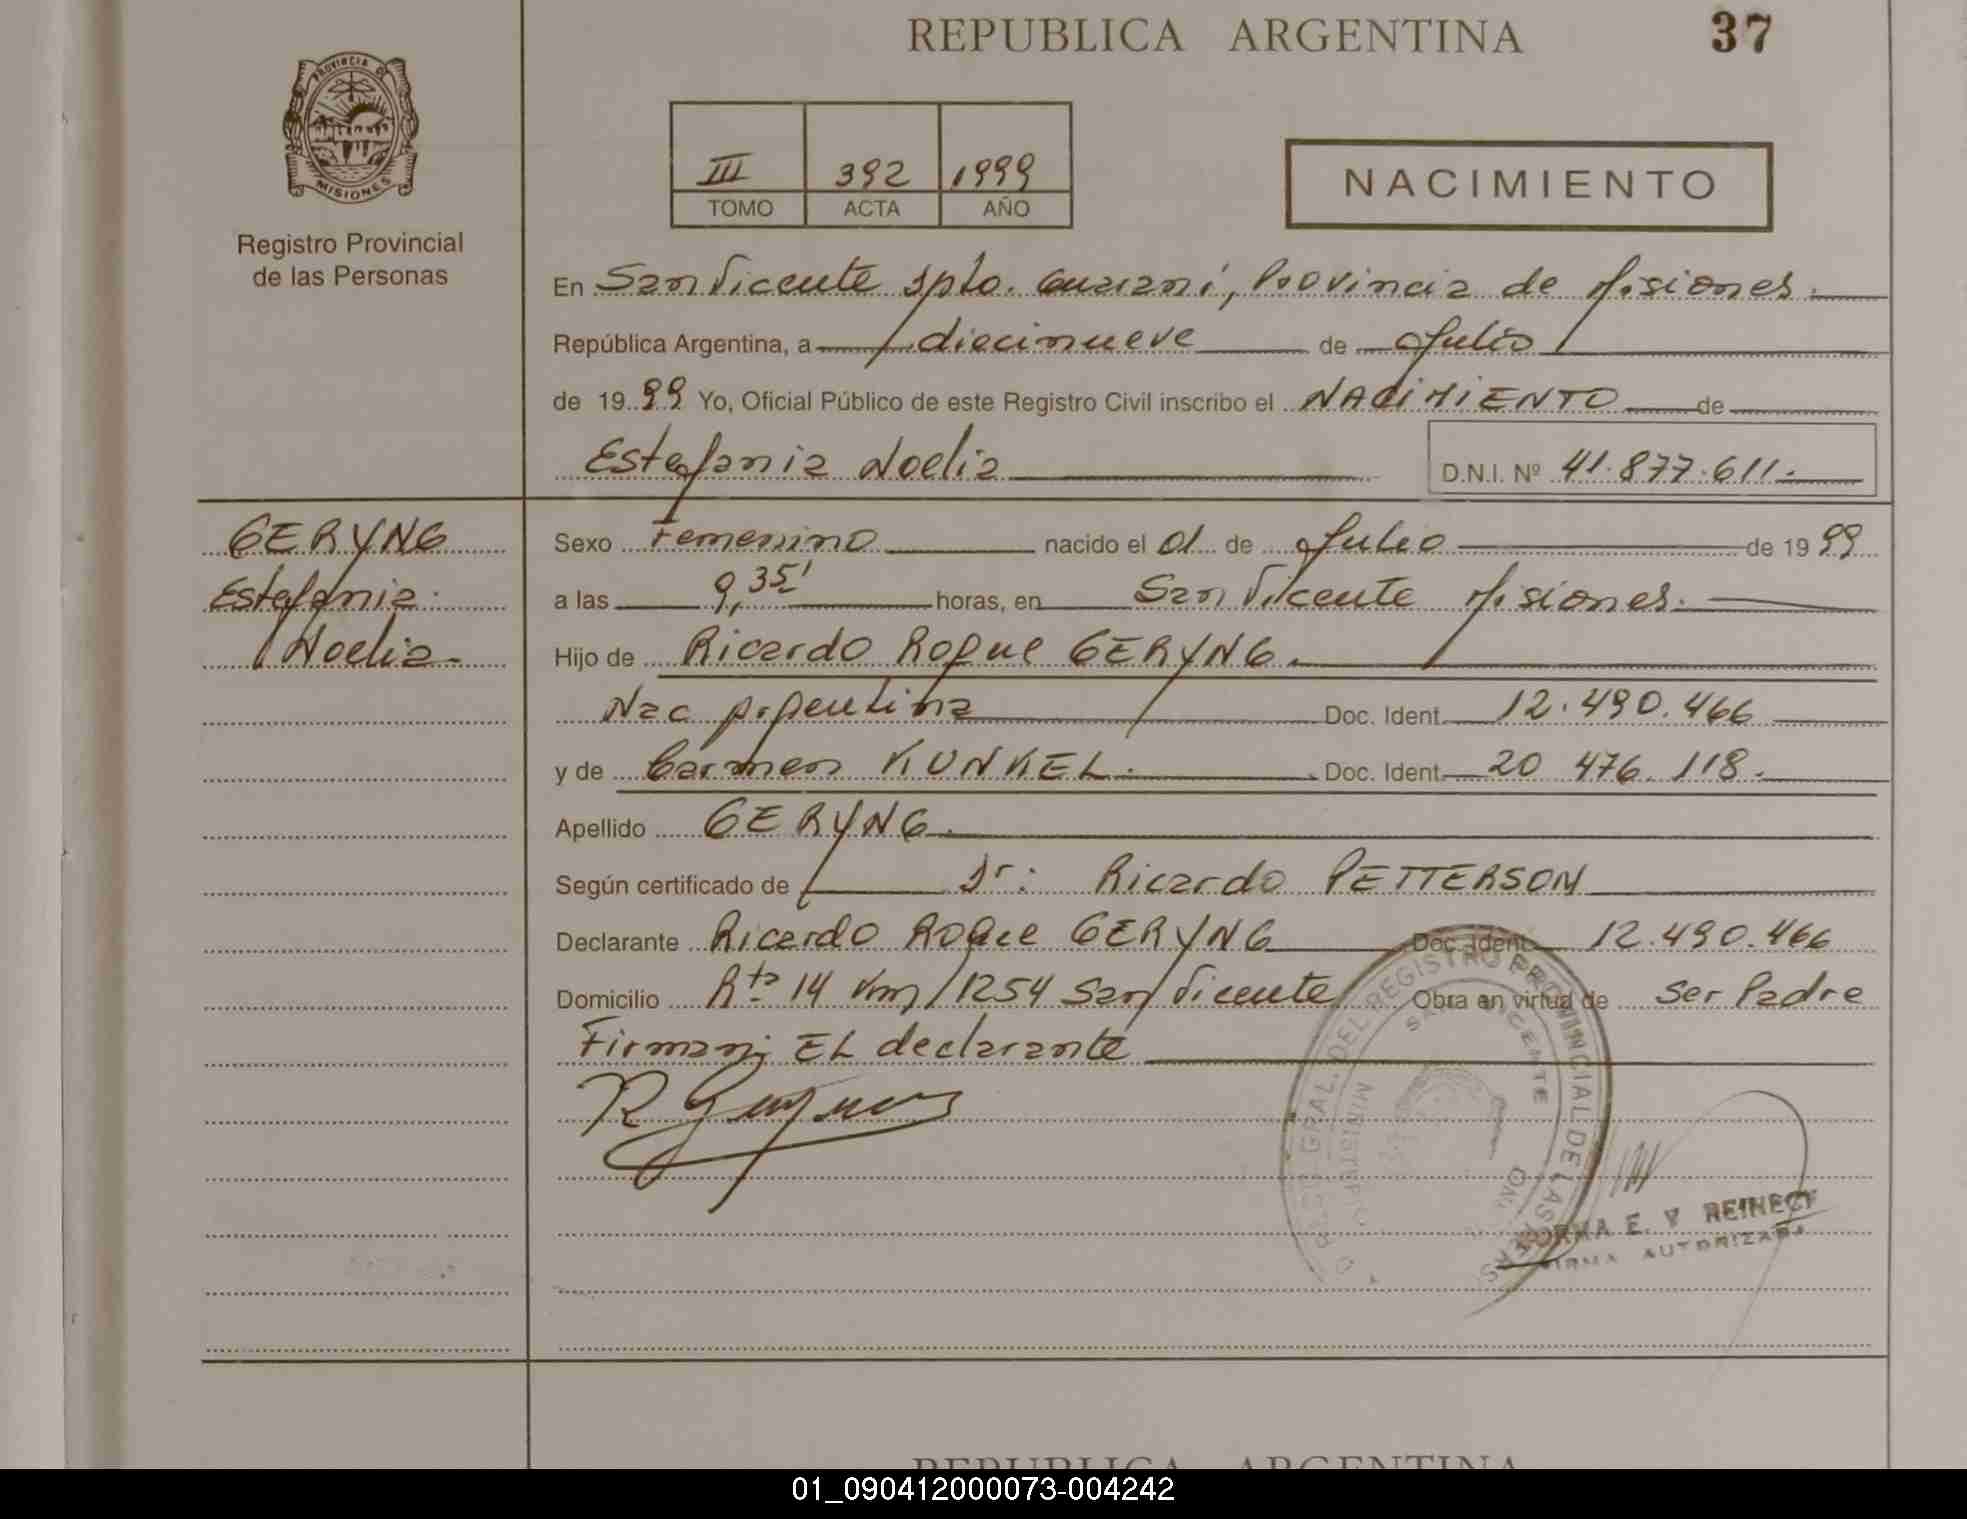 REPUBLICA ARGENTINA
37
PROVINCIA DE
MISIONES
Registro Provincial
de las Personas
III 392 1999
TOMO ACTA AÑO
NACIMIENTO
En San Vicente Dpto. Guarani, Provincia de Misiones.
República Argentina, a diecinueve de Julio
de 1999 Yo, Oficial Público de este Registro Civil inscribo el NACIMIENTO de
Estefania Noelia D.N.I. Nº 41.877.611.
GERYNG
Estefania
Noelia
Sexo Femenino nacido el 01 de Julio de 1999
a las 9,35' horas, en San Vicente Misiones.
Hijo de Ricardo Roque GERYNG.
Nac Argentina Doc. Ident. 12.490.466
y de Carmen KUNKEL. Doc. Ident. 20 476.118.
Apellido GERYNG.
Según certificado de Dr: Ricardo PETTERSON
Declarante Ricardo Roque GERYNG Doc. Ident. 12.490.466
Domicilio Rta 14 Km 1254 San Vicente Obra en virtud de Ser Padre
Firman: EL declarante
GRAL. DEL REGISTRO PROVINCIAL DE LAS
SAN VICENTE
E. V. REINECK
FIRMA AUTORIZADA
REPUBLICA ARGENTINA
01_090412000073-004242